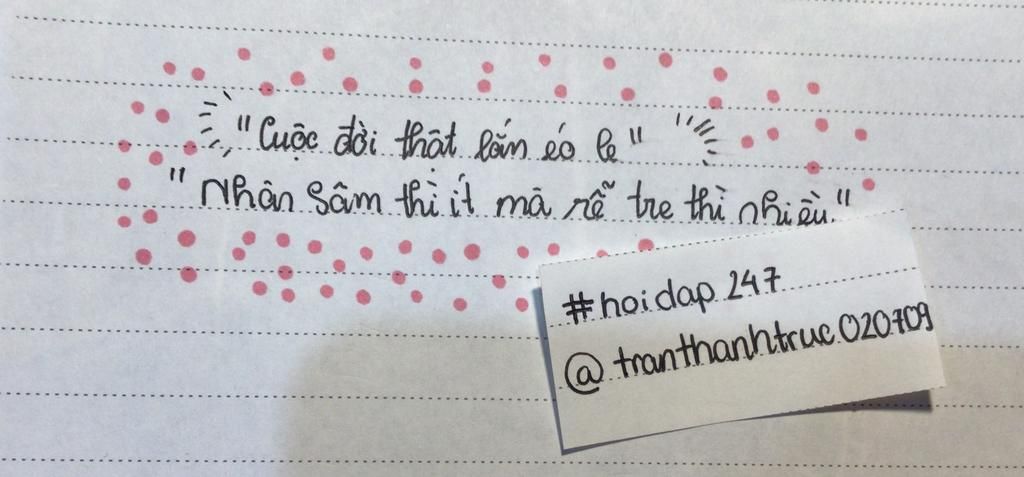 "Cuộc đời thật lắm éo le"
"Nhân Sâm thì ít mà rễ tre thì nhiều."
#hoidap247
@tranthanhtruc020709